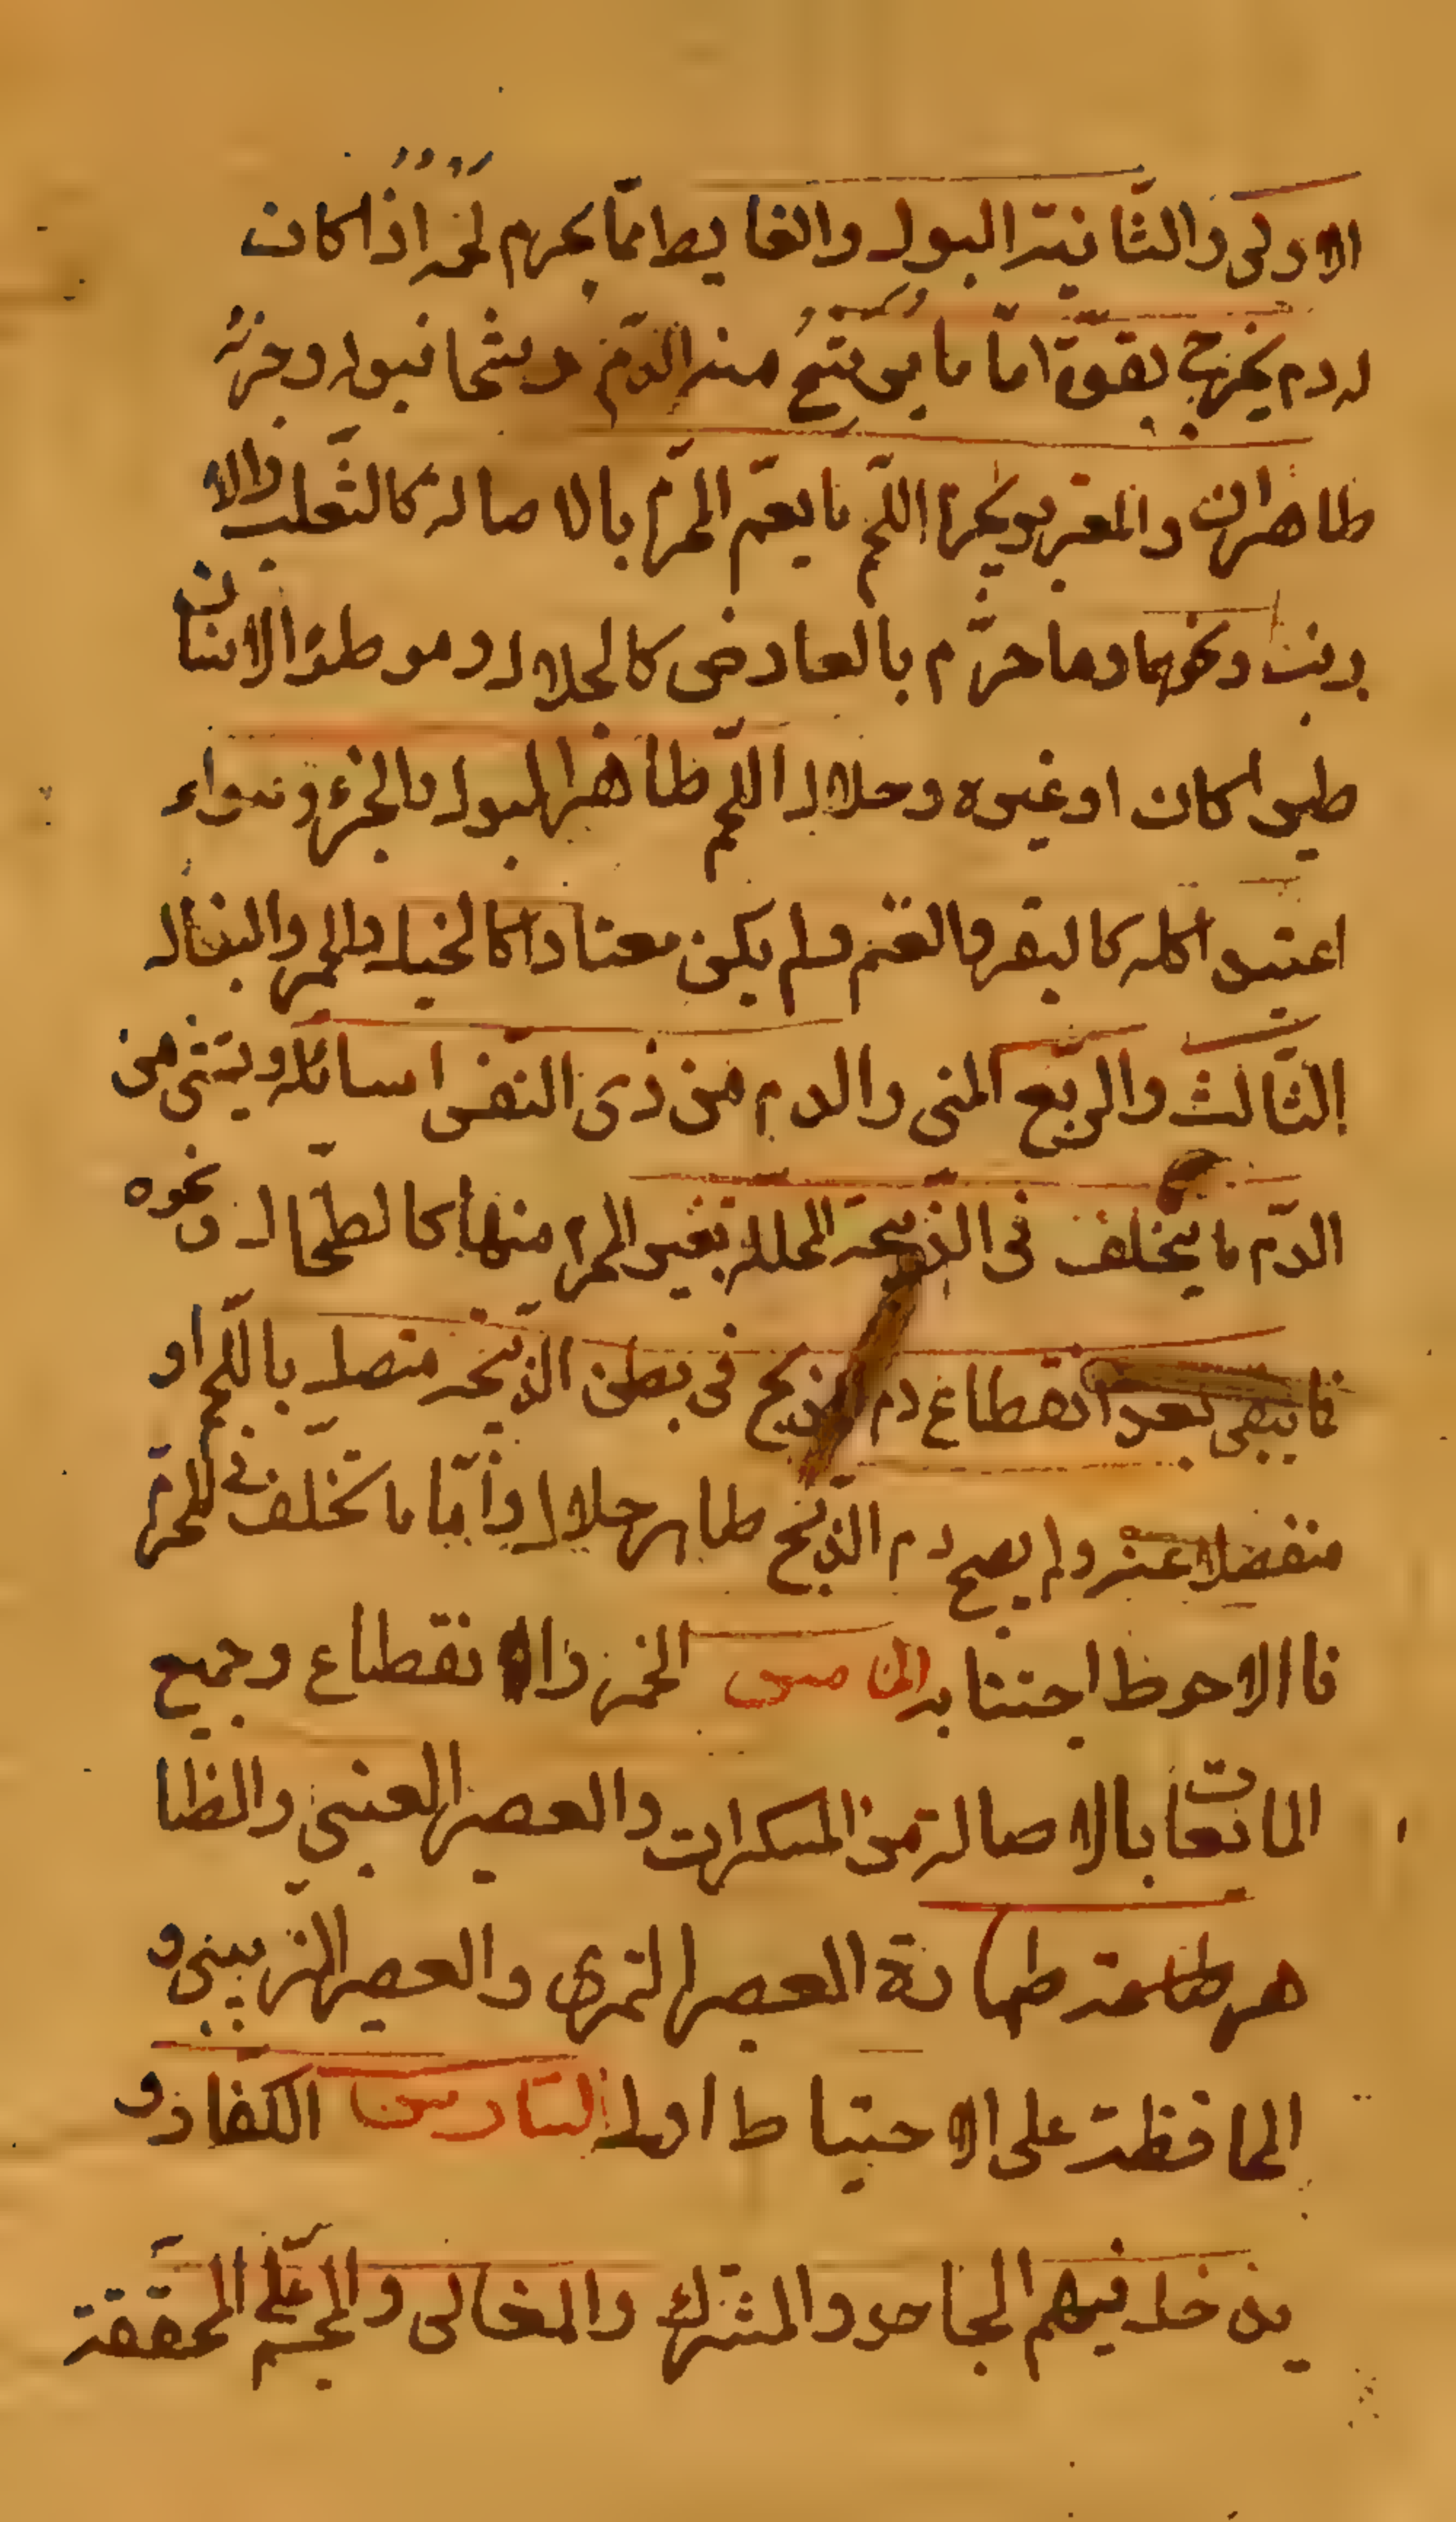 الاولى والثّانية البول والغايط ممّا يحرم لحمه اذا كان
له دم يخرج بقوّة امّا ما يرشح منه الدّم رشحا فبوله وخرئه
طاهران والمعتبر بحرمة اللّحم ما يعمّ المحرّم بالاصالة كالثّعلب والار
رنب ونحوهما وما حرّم بالعارض كالجلال وموطوء الانسان
طير اكان او غيره وحلال اللّحم طاهر البول والخرء وسواء
اعتيد اكله كالبقر والغنم ولم يكن معتادا كالخيل والحمر والبغال
الثّالث والرّبع المنى والدم من ذى النّفس اسائله ويستثنى من
الدّم ما يتخلف فى الذّبيحة المحللة بغير المحرم منها كالطّحال ونحوه
فما يبقى بعد انقطاع دم الذبح فى بطن الذّبيحة متصل باللّحم او
منفصلا عنه ولم يصبه دم الذّبح طاهر حلال وأمّا ما تخلّف فى المحرّم
فاالاحوط اجتنابه الخامس الخمر والانقطاع وجميع
المائعات بالاصالة من المسكرات والعصير العنبى والظا
هر طهارة العصير التمرى والعصير الزبيبى و
المحافظة على الاحتياط اولى السّادس الكفّار و
يدخل فيهم الجاحد والمشرك والمغالى والمجسّم على المحققة